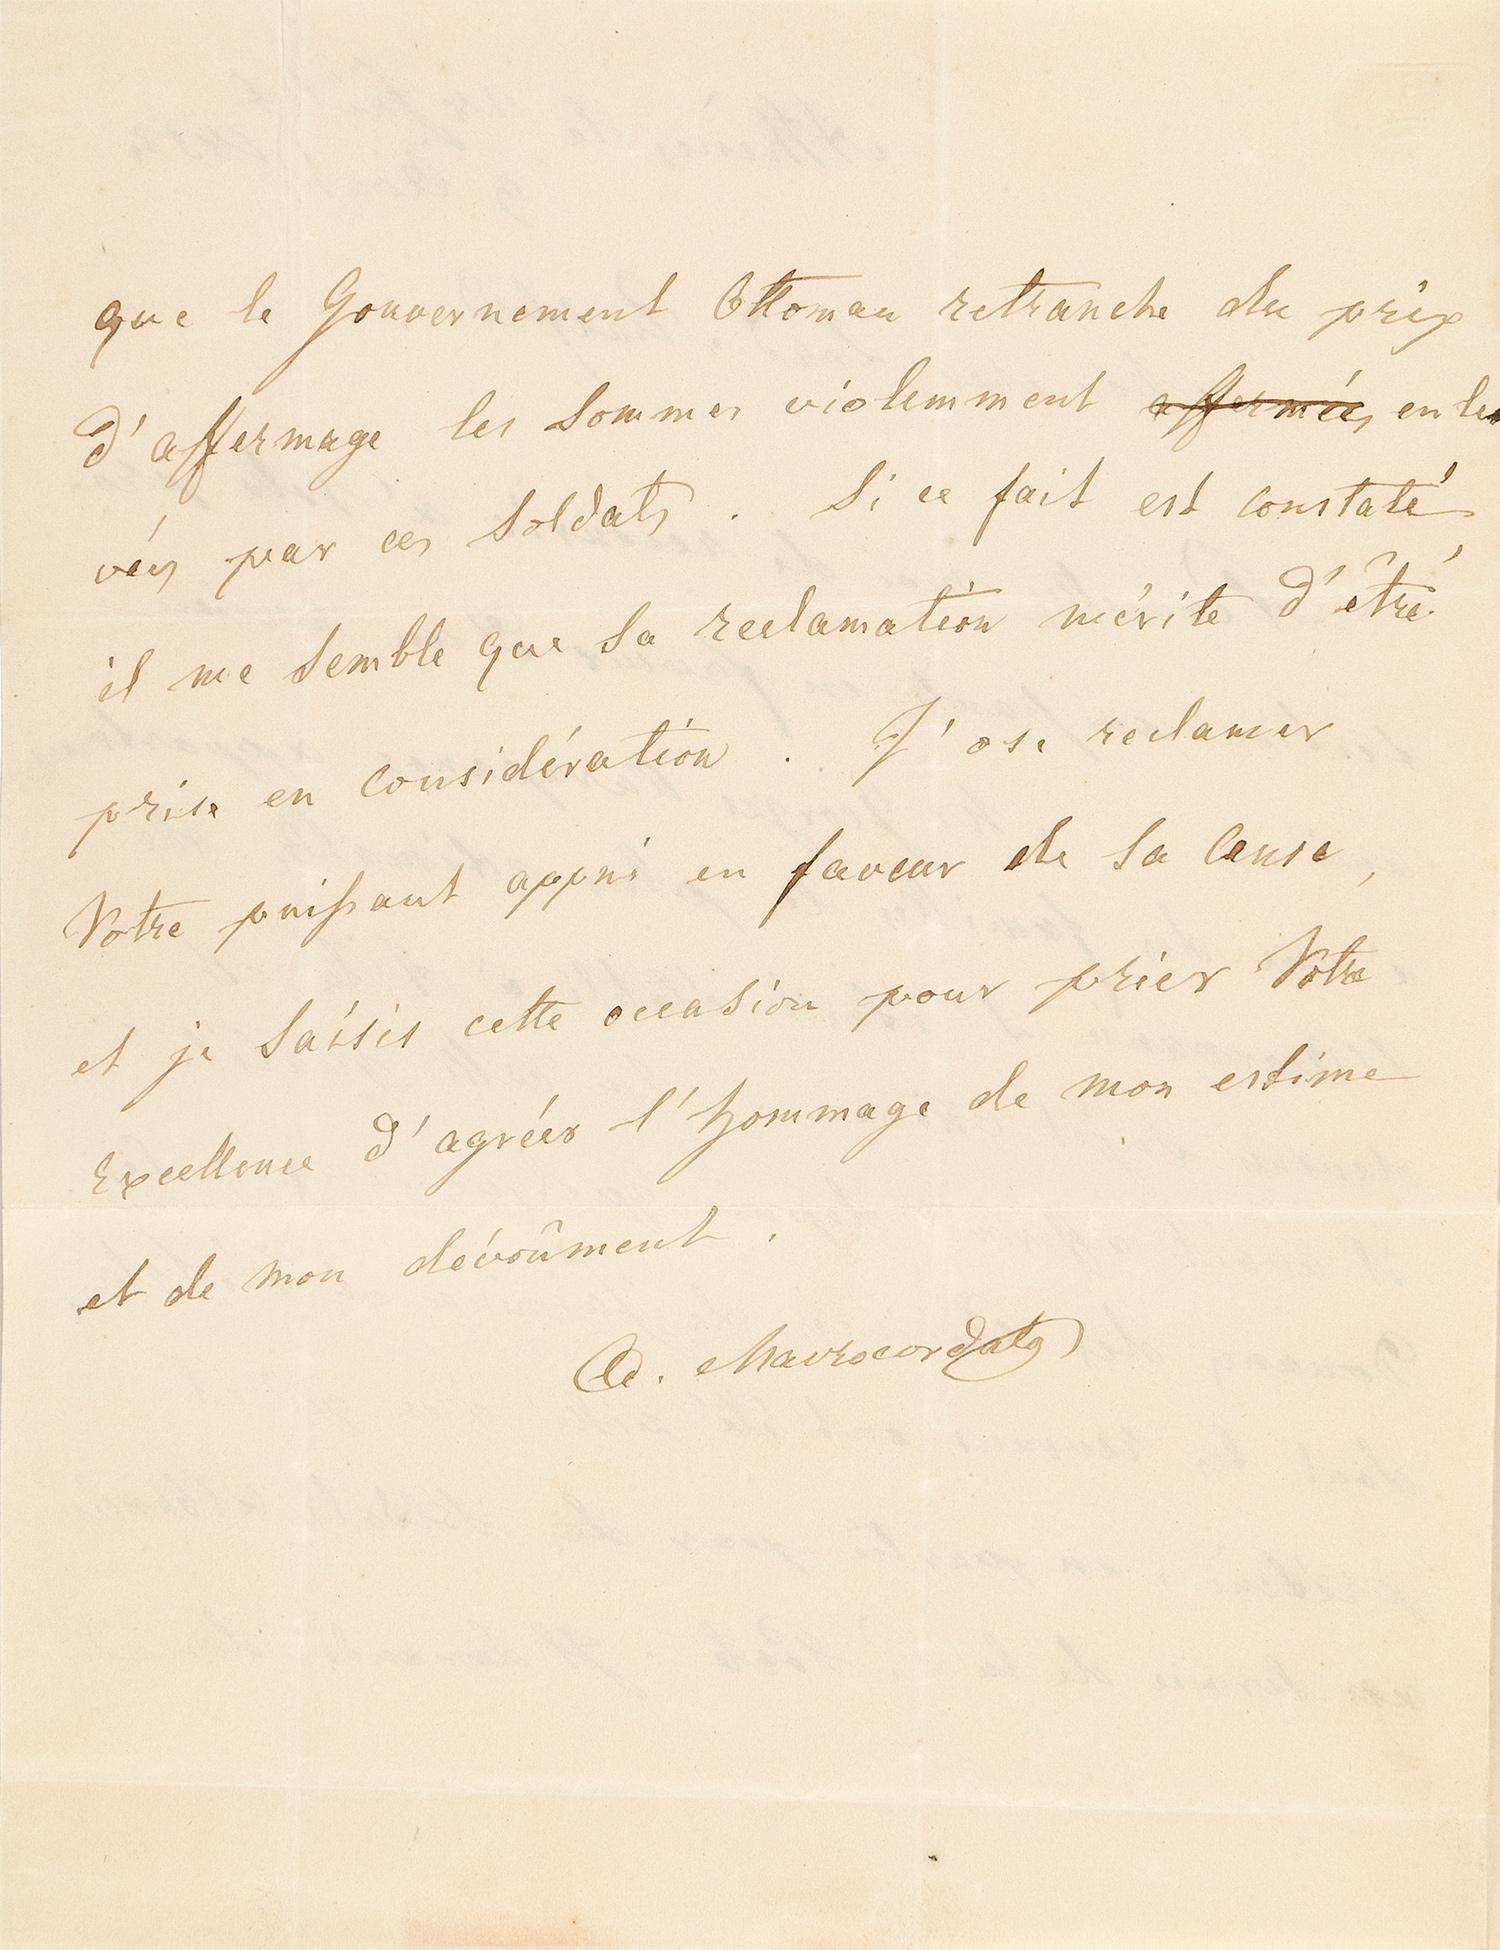 que le Gouvernement Ottoman retranche du prix
d'affermage les sommes violemment ~~affermées~~ enle
vées par ces soldats . Si ce fait est constaté
il me semble que sa reclamation mérite d'être
prise en considération . J'ose reclamer
Votre puissant appui en faveur de sa cause,
et je saisis cette occasion pour prier Votre
Excellence d'agréer l'hommage de mon estime
et de mon dévoûment .
A. Mavrocordato